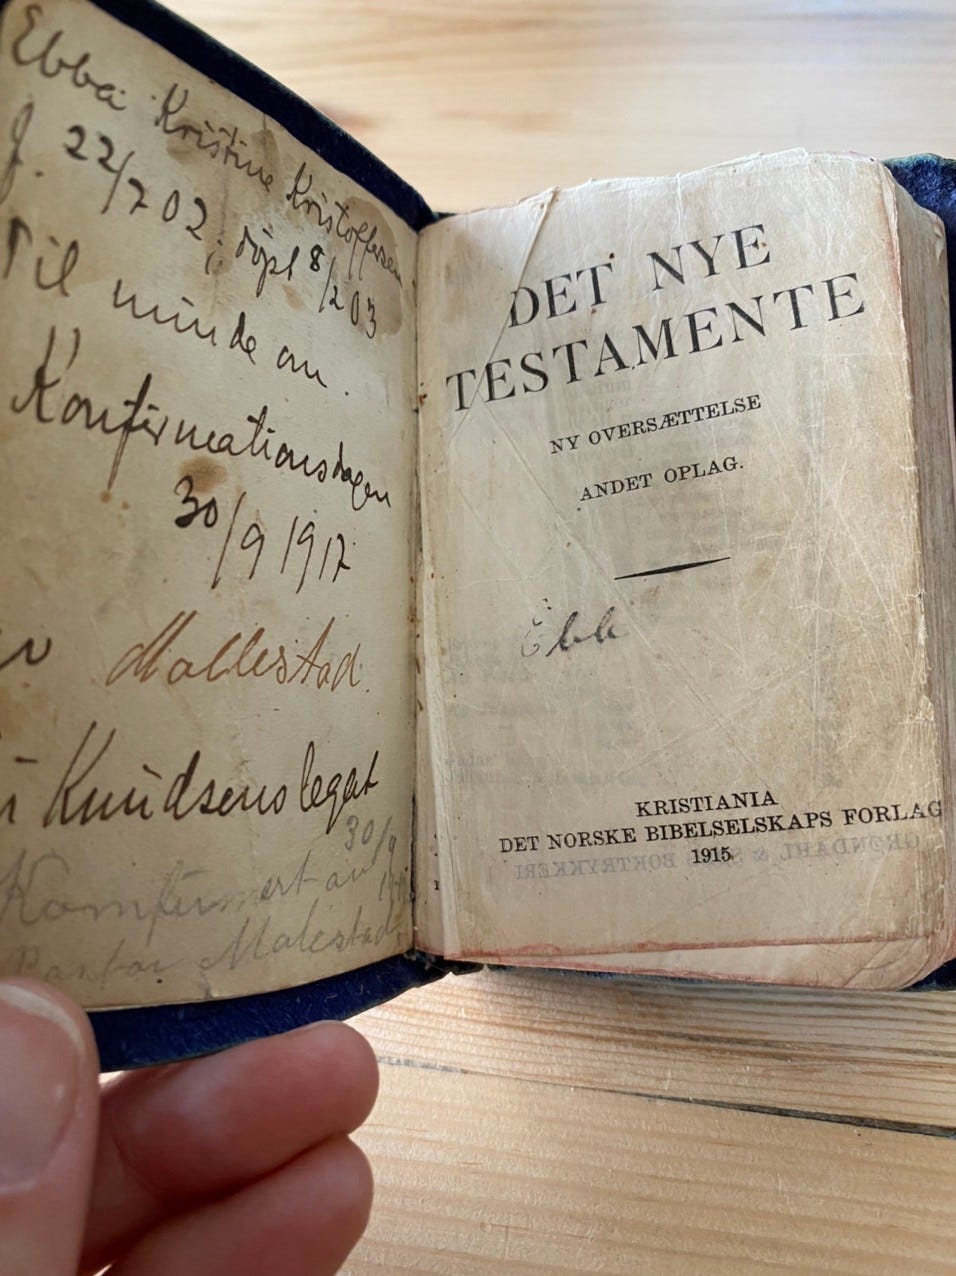 Ebba Kristine Kristoffersen
f. 22/7 02, döpt 8/2 03
Til minde om
Konfirmationsdagen
30/9 1917
av Mollestad.
i Knudsens legat
30/9
Komfirmert av
Mollestad
DET NYE
TESTAMENTE
NY OVERSÆTTELSE
ANDET OPLAG.
Ebb
KRISTIANIA
DET NORSKE BIBELSELSKAPS FORLAG
1915
GRØNDAHL & SØNS BOKTRYKKERI